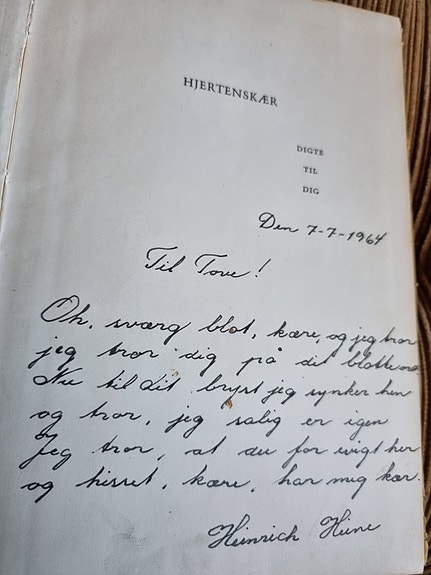 HJERTENSKÆR
DIGTE
TIL
DIG
Den 7-7-1964
Til Tove!
Oh, sværg blot, kære, og jeg tror
jeg tror dig på dit blotte ord
Nu til dit bryst jeg synker hen
og tror, jeg salig er igen
Jeg tror, at du for evigt her
og hisset, kære, har mig kær.
Heinrich Heine